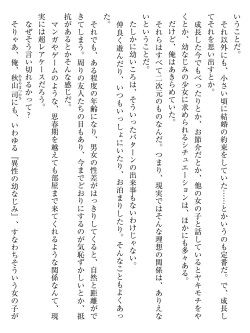 いうことだ。
　それ以外にも、小さい頃に結婚の約束をしていた……とかいうのも定番だ。で、成長し
てそれを思い出すとか。
　成長した今でもべったりとか、お節介だとか、他の女の子と話しているとヤキモチをや
くとか、幼なじみの少女に求められるシチュエーションは、ほかにも多々ある。
　だけど、俺はあきらめていた。
　それらはすべて二次元のものなんだ。つまり、現実ではそんな理想の関係は、ありえな
いということだ。
　たしかに幼いころは、そういったパターンの出来事もないわけじゃない。
　仲良く遊んだり、いつもいっしょにいたり、お泊まりしたり。そんなこともよくあっ
た。
　それでも、ある程度の年齢になり、男女の性差がはっきりしてくると、自然と距離がで
きてしまう。周りの友人たちの目もあり、今までどおりにするのが気恥ずかしいとか、抵
抗があるとかそんな感じだ。
　マンガやゲームのような、思春期を越えても部屋まで来てくれるような関係なんて、現
実には超レアケースだろう。
　なぜそう言い切れるかって？
　そりゃあ、俺、秋山司にも、いわゆる『異性の幼なじみ』、すなわちそういう女の子が